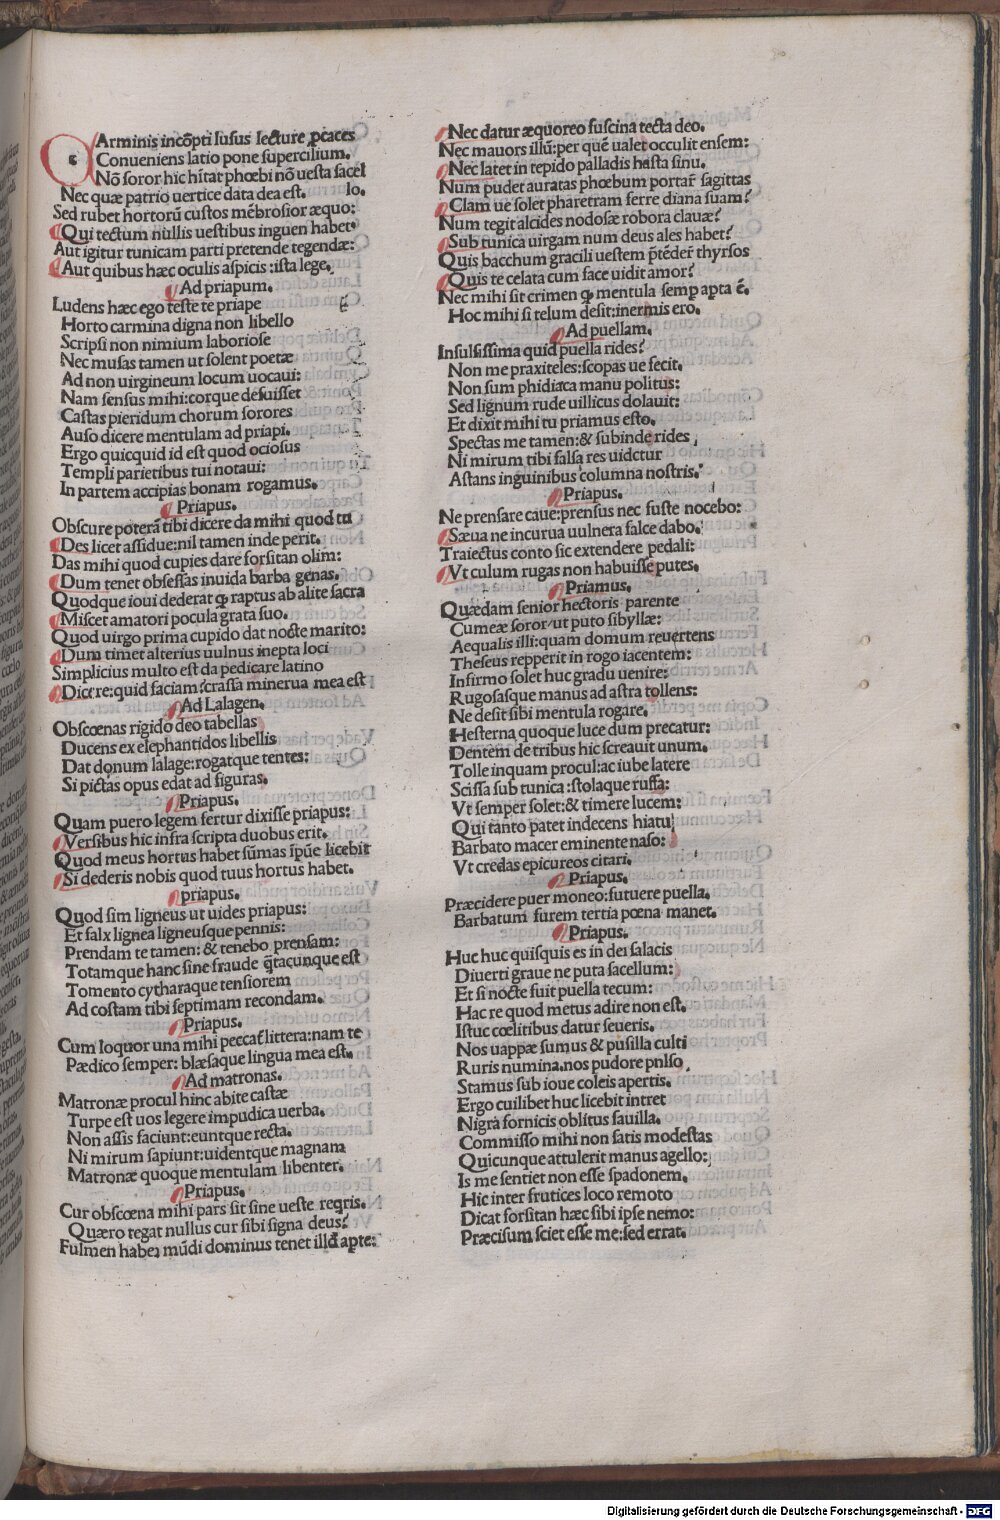 Carminis incōpti lusus lecture ꝓcaces
Conueniens latio pone supercilium.
Nō soror hic hītat phœbi nō uesta sacel
Nec quæ patrio uertice data dea est. lo.
Sed rubet hortorū custos mēbrosior æquo:
Qui tectum nullis uestibus inguen habet.
Aut igitur tunicam parti pretende tegendæ:
Aut quibus hæc oculis aspicis :ista lege.
Ad priapum.
Ludens hæc ego teste te priape
Horto carmina digna non libello
Scripsi non nimium laboriose
Nec musas tamen ut solent poetæ
Ad non uirgineum locum uocaui:
Nam sensus mihi:corque defuisset
Castas pieridum chorum sorores
Auso dicere mentulam ad priapi.
Ergo quicquid id est quod ociosus
Templi parietibus tui notaui:
In partem accipias bonam rogamus.
Priapus.
Obscure poterā tibi dicere da mihi quod tu
Des licet assidue:nil tamen inde perit.
Das mihi quod cupies dare forsitan olim:
Dum tenet obsessas inuida barba genas.
Quodque ioui dederat qꝫ raptus ab alite sacra
Miscet amatori pocula grata suo.
Quod uirgo prima cupido dat nocte marito:
Dum timet alterius uulnus inepta loci
Simplicius multo est da pedicare latino
Dicere:quid faciam:crassa minerua mea est
Ad Lalagen.
Obscœnas rigido deo tabellas
Ducens ex elephantidos libellis
Dat donum lalage:rogatque tentes:
Si pictas opus edat ad figuras.
Priapus.
Quam puero legem fertur dixisse priapus:
Versibus hic infra scripta duobus erit.
Quod meus hortus habet sūmas īpūe licebit
Si dederis nobis quod tuus hortus habet.
priapus.
Quod sim ligneus ut uides priapus:
Et falx lignea ligneusque pennis:
Prendam te tamen: & tenebo prensam:
Totamque hanc sine fraude q̄tacunque est
Tomento cytharaque tensiorem
Ad costam tibi septimam recondam.
Priapus.
Cum loquor una mihi peccat̄ littera:nam te
Pædico semper: blæsaque lingua mea est.
Ad matronas.
Matronæ procul hinc abite castæ
Turpe est uos legere impudica uerba.
Non assis faciunt:euntque recta.
Ni mirum sapiunt:uidentque magnam
Matronæ quoque mentulam libenter.
Priapus.
Cur obscœna mihi pars sit sine ueste reqris.
Quæro tegat nullus cur sibi signa deus?
Fulmen habeꝫ mūdi dominus tenet illđ apte:
Nec datur æquoreo fuscina tecta deo.
Nec mauors illū:per quē ualet occulit ensem:
Nec latet in tepido palladis hasta sinu.
Num pudet auratas phœbum portar̄ sagittas
Clam ue solet pharetram ferre diana suam?
Num tegit alcides nodosæ robora clauæ?
Sub tunica uirgam num deus ales habet?
Quis bacchum gracili uestem p̄tēder̄ thyrsos
Quis te celata cum face uidit amor?
Nec mihi sit crimen qꝫ mentula semꝑ apta ē.
Hoc mihi si telum desit:inermis ero.
Ad puellam.
Insulsissima quid puella rides?
Non me praxiteles:scopas ue fecit.
Non sum phidiaca manu politus:
Sed lignum rude uillicus dolauit:
Et dixit mihi tu priamus esto.
Spectas me tamen:& subinde rides
Ni mirum tibi falsa res uidctur
Astans inguinibus columna nostris.
Priapus.
Ne prensare caue:prensus nec fuste nocebo:
Sæua ne incurua uulnera falce dabo.
Traiectus conto sic extendere pedali:
Vt culum rugas non habuisse putes.
Priamus.
Quædam senior hectoris parente
Cumeæ soror/ut puto sibyllæ:
Aequalis illi:quam domum reuertens
Theseus repperit in rogo iacentem:
Infirmo solet huc gradu uenire:
Rugosasque manus ad astra tollens:
Ne desit sibi mentula rogare.
Hesterna quoque luce dum precatur:
Dentem de tribus hic screauit unum.
Tolle inquam procul:ac iube latere
Scissa sub tunica :stolaque russa:
Vt semper solet:& timere lucem:
Qui tanto patet indecens hiatu
Barbato macer eminente naso:
Vt credas epicureos citari.
Priapus.
Præcidere puer moneo:futuere puella.
Barbatum furem tertia pœna manet.
Priapus.
Huc huc quisquis es in dei salacis
Diuerti graue ne puta sacellum:
Et si nocte fuit puella tecum:
Hac re quod metus adire non est.
Istuc cœlitibus datur seueris.
Nos uappæ sumus & pusilla culti
Ruris numina.nos pudore pnlso
Stamus sub ioue coleis apertis.
Ergo cuilibet huc licebit intret
Nigra fornicis oblitus fauilla.
Commisso mihi non satis modestas
Quicunque attulerit manus agello:
Is me sentiet non esse spadonem.
Hic inter frutices loco remoto
Dicat forsitan hæc sibi ipse nemo:
Præcisum sciet esse me:sed errat.
Digitalisierung gefördert durch die Deutsche Forschungsgemeinschaft - DFG